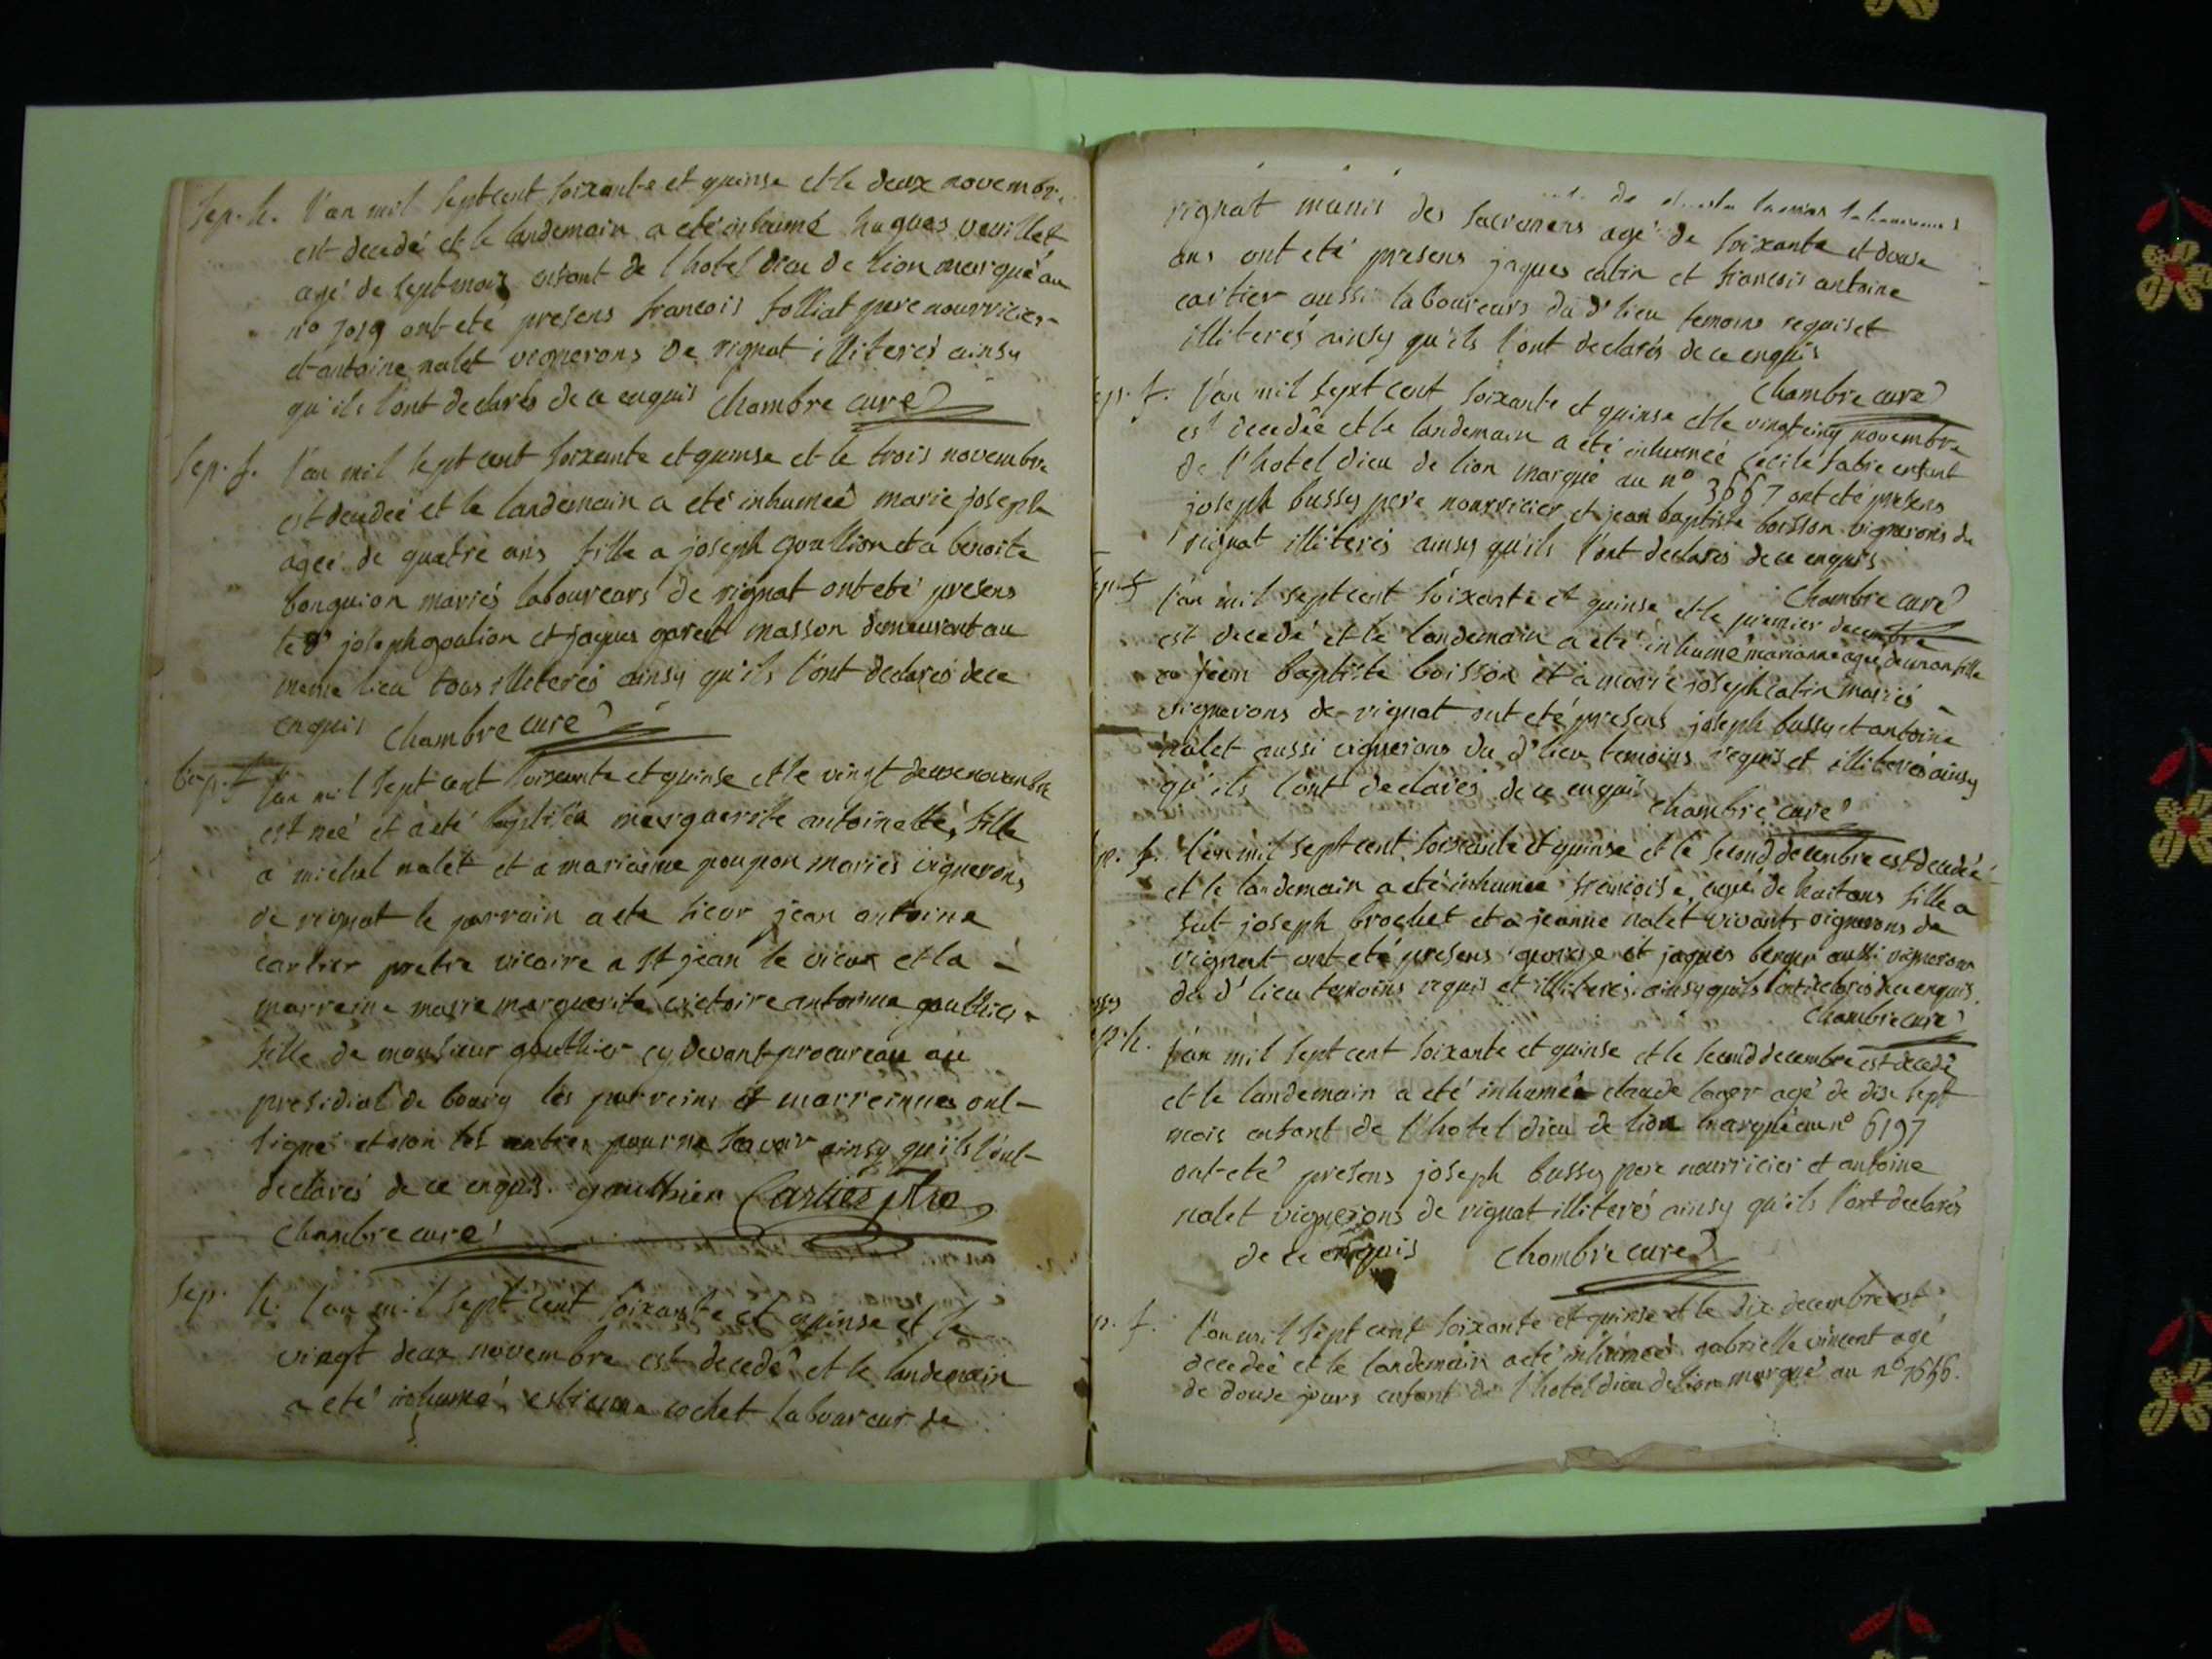 Sep. h. l'an mil sept cent soixante et quinse et le deux novembre
est decedé et le landemain a eté inhumé hugues veuillet
agé de sept mois enfant de l'hotel dieu de lion marqué au
n° ont eté presens francois folliat pere nourricier
et antoine nalet vignerons de rignat illiterés ainsy
qu'ils l'ont declarés de ce enquis Chambre curé
Sep. f. l'an mil sept cent soixante et quinse et le trois novembre
est decedeé et le landemain a eté inhumeé marie joseph
ageé de quatre ans fille a joseph goullion et a benoite
bonguion mariés laboureurs de rignat ont eté presens
le dt joseph goulion et jaques masson demeurant au
meme lieu tous illiterés ainsy qu'ils l'ont declarés de ce
enquis Chambre curé
bap. f l'an mil sept cent soixante et quinse et le vingt deuxe novembre
est neé et a eté baptiseé marguerite antoinette, fille
a michel nalet et a marianne poupon mariés vignerons
de rignat le parrain a ete sieur jean antoine
cartier pretre vicaire a st jean le vieux et la
marreine marie marguerite victoire antoinne gauthier
fille de monsieur gauthier cy devant procureau au
presidial de bourg les parreins et marreinnes ont
signé et non les autres pour ne scavoir ainsy qu'ils l'ont
declarés de ce enquis. gauthier Cartier ptre
Chambre curé
Sep. h. l'an mil sept cent soixante et quinse et le
vingt deux novembre est decedé et le landemain
a eté inhumé estienne cochet laboureur de
rignat munis des sacremens agé de soixante et douse
ans ont eté presens jaques catin et francois antoine
cartier aussi laboureurs du dt lieu temoins requis et
illiterés ainsy qu'ils l'ont declarés de ce enquis
Chambre curé
sep. f. l'an mil sept cent soixante et quinse et le vingt cinq novembre
est decedée et le landemain a eté inhumeé cecile fabie enfant
de l'hotel dieu de lion marqué au n° 3667 ont eté presens
joseph bussy pere nourricier et jean baptiste boisson vignerons de
rignat illiterés ainsy qu'ils l'ont declarés de ce enquis
Chambre curé
sep. f l'an mil sept cent soixante et quinse et le premier decembre
est decedé et le landemain a eté inhumé marianne ageé de un an fille
a jean baptiste boisson et a marie joseph catin mariés
vignerons de rignat ont eté presens joseph bussy et antoine
nalet aussi vignerons du dt lieu temoins requis et illiterés ainsy
qu'ils l'ont declarés de ce enquis
Chambre curé
sep. f. l'an mil sept cent soixante et quinse et le second decembre est decedé
et le landemain a eté inhumeé francoise, ageé de huit ans fille a
feut joseph brochet et a jeanne nalet vivants vignerons de
rignat ont eté presens george et jaques berger aussi vignerons
du dt lieu temoins requis et illiterés ainsy qu'ils l'ont declarés de ce enquis.
Chambre curé
sep. h. l'an mil sept cent soixante et quinse et le second decembre est decedé
et le landemain a eté inhumée claude loger agé de dix sept
mois enfant de l'hotel dieu de lion marqué au n° 6197
ont eté presens joseph bussy pere nourricier et antoine
nalet vignerons de rignat illiterés ainsy qu'ils l'ont declarés
de ce enquis Chambre curé
sep. f. l'an mil sept cent soixante et quinse et le dix decembre est
decedeé et le landemain a eté inhumeé gabrielle vincent agé
de douse jours enfant de l'hotel dieu de lion marqué au n°